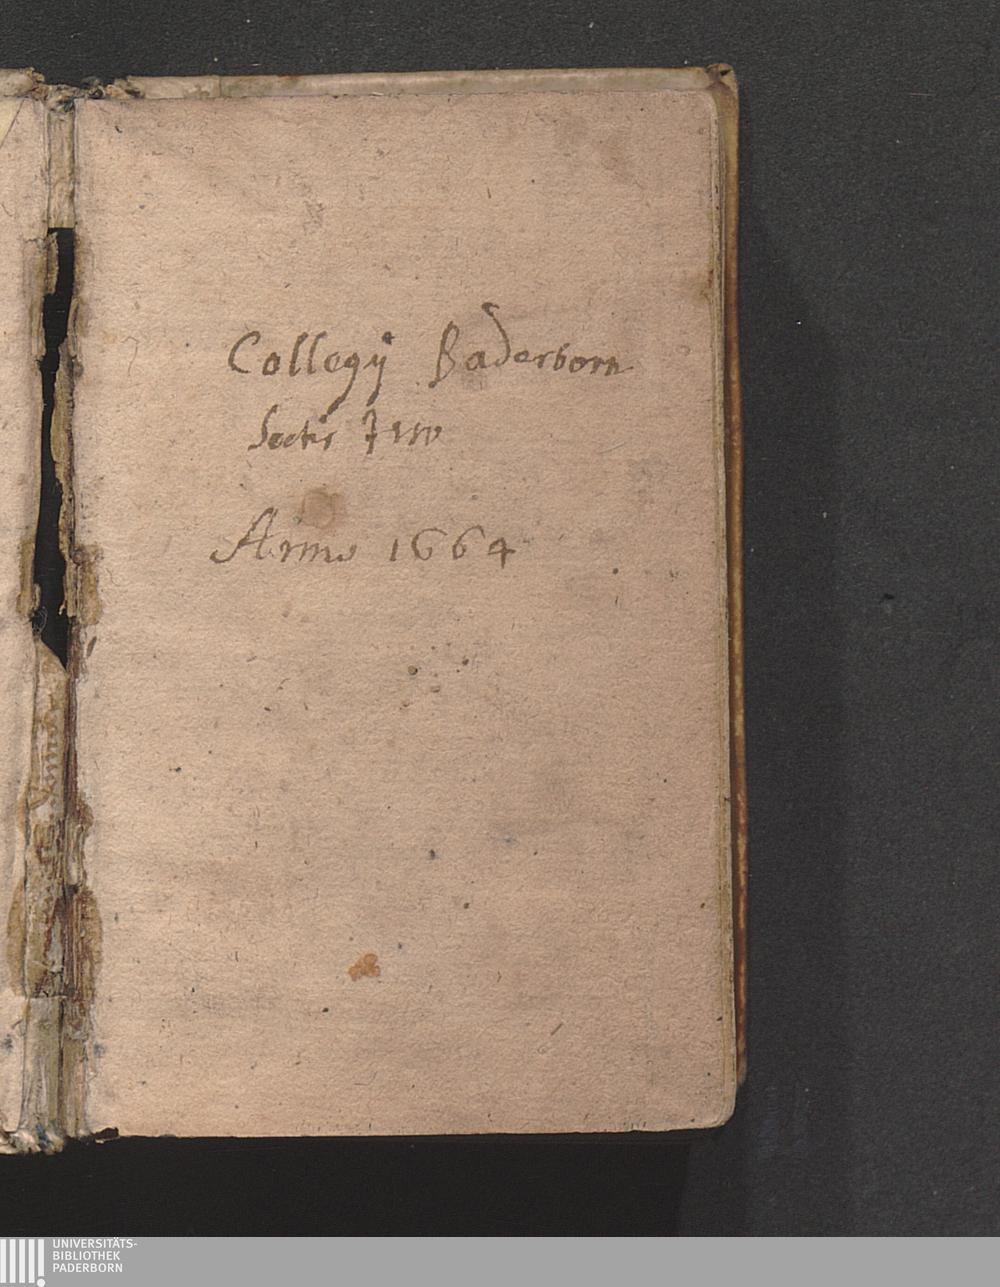 Collegÿ Paderborn
Soctis Jesu
Anno 1664
UNIVERSITÄTS-
BIBLIOTHEK
PADERBORN